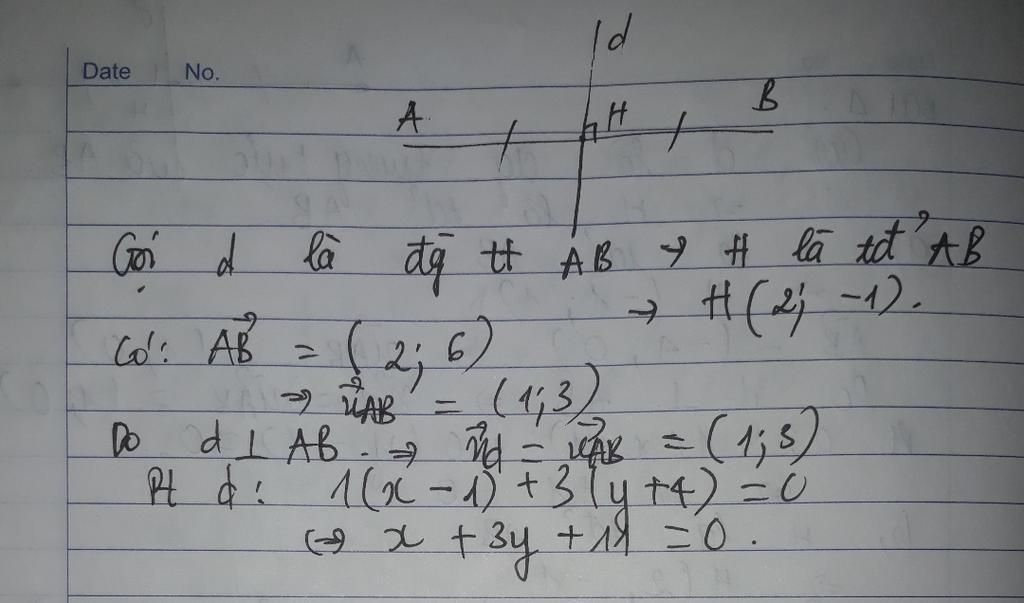 Date No.
d
A H B
Gọi d là đg tt AB → H là tđ AB
→ H(2; -1).
Có: AB = (2; 6)
→ uAB = (1; 3)
Do d ⊥ AB. → nd = uAB = (1; 3)
Pt d: 1(x - 1) + 3(y + 4) = 0
(→ x + 3y + 11 = 0.